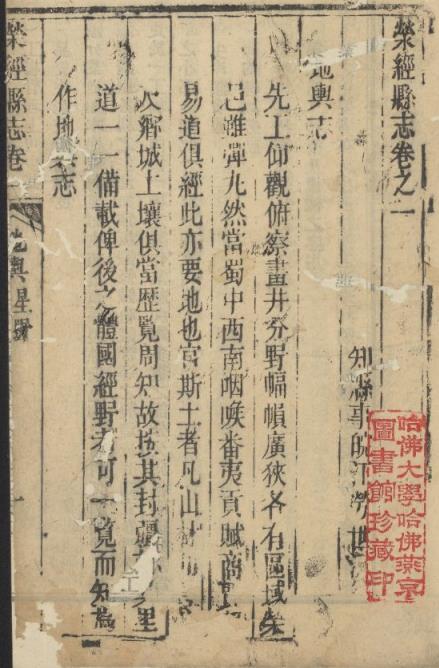 榮經縣志卷之一
知縣事
地輿志
先王仰觀俯察畫井分野幅幀廣狹各有區域榮
邑雖彈丸然當蜀中西南咽喉番夷貢賦商
易道俱經此亦要地也官斯土者凡山
次鄉城土壤俱當歷覽周知故按其封疆 里
道一一備載俾後之體國經野者可一覽而知焉
作地 志
榮經縣志卷一
地輿 星野
哈佛大學哈佛燕京
圖書館珍藏印